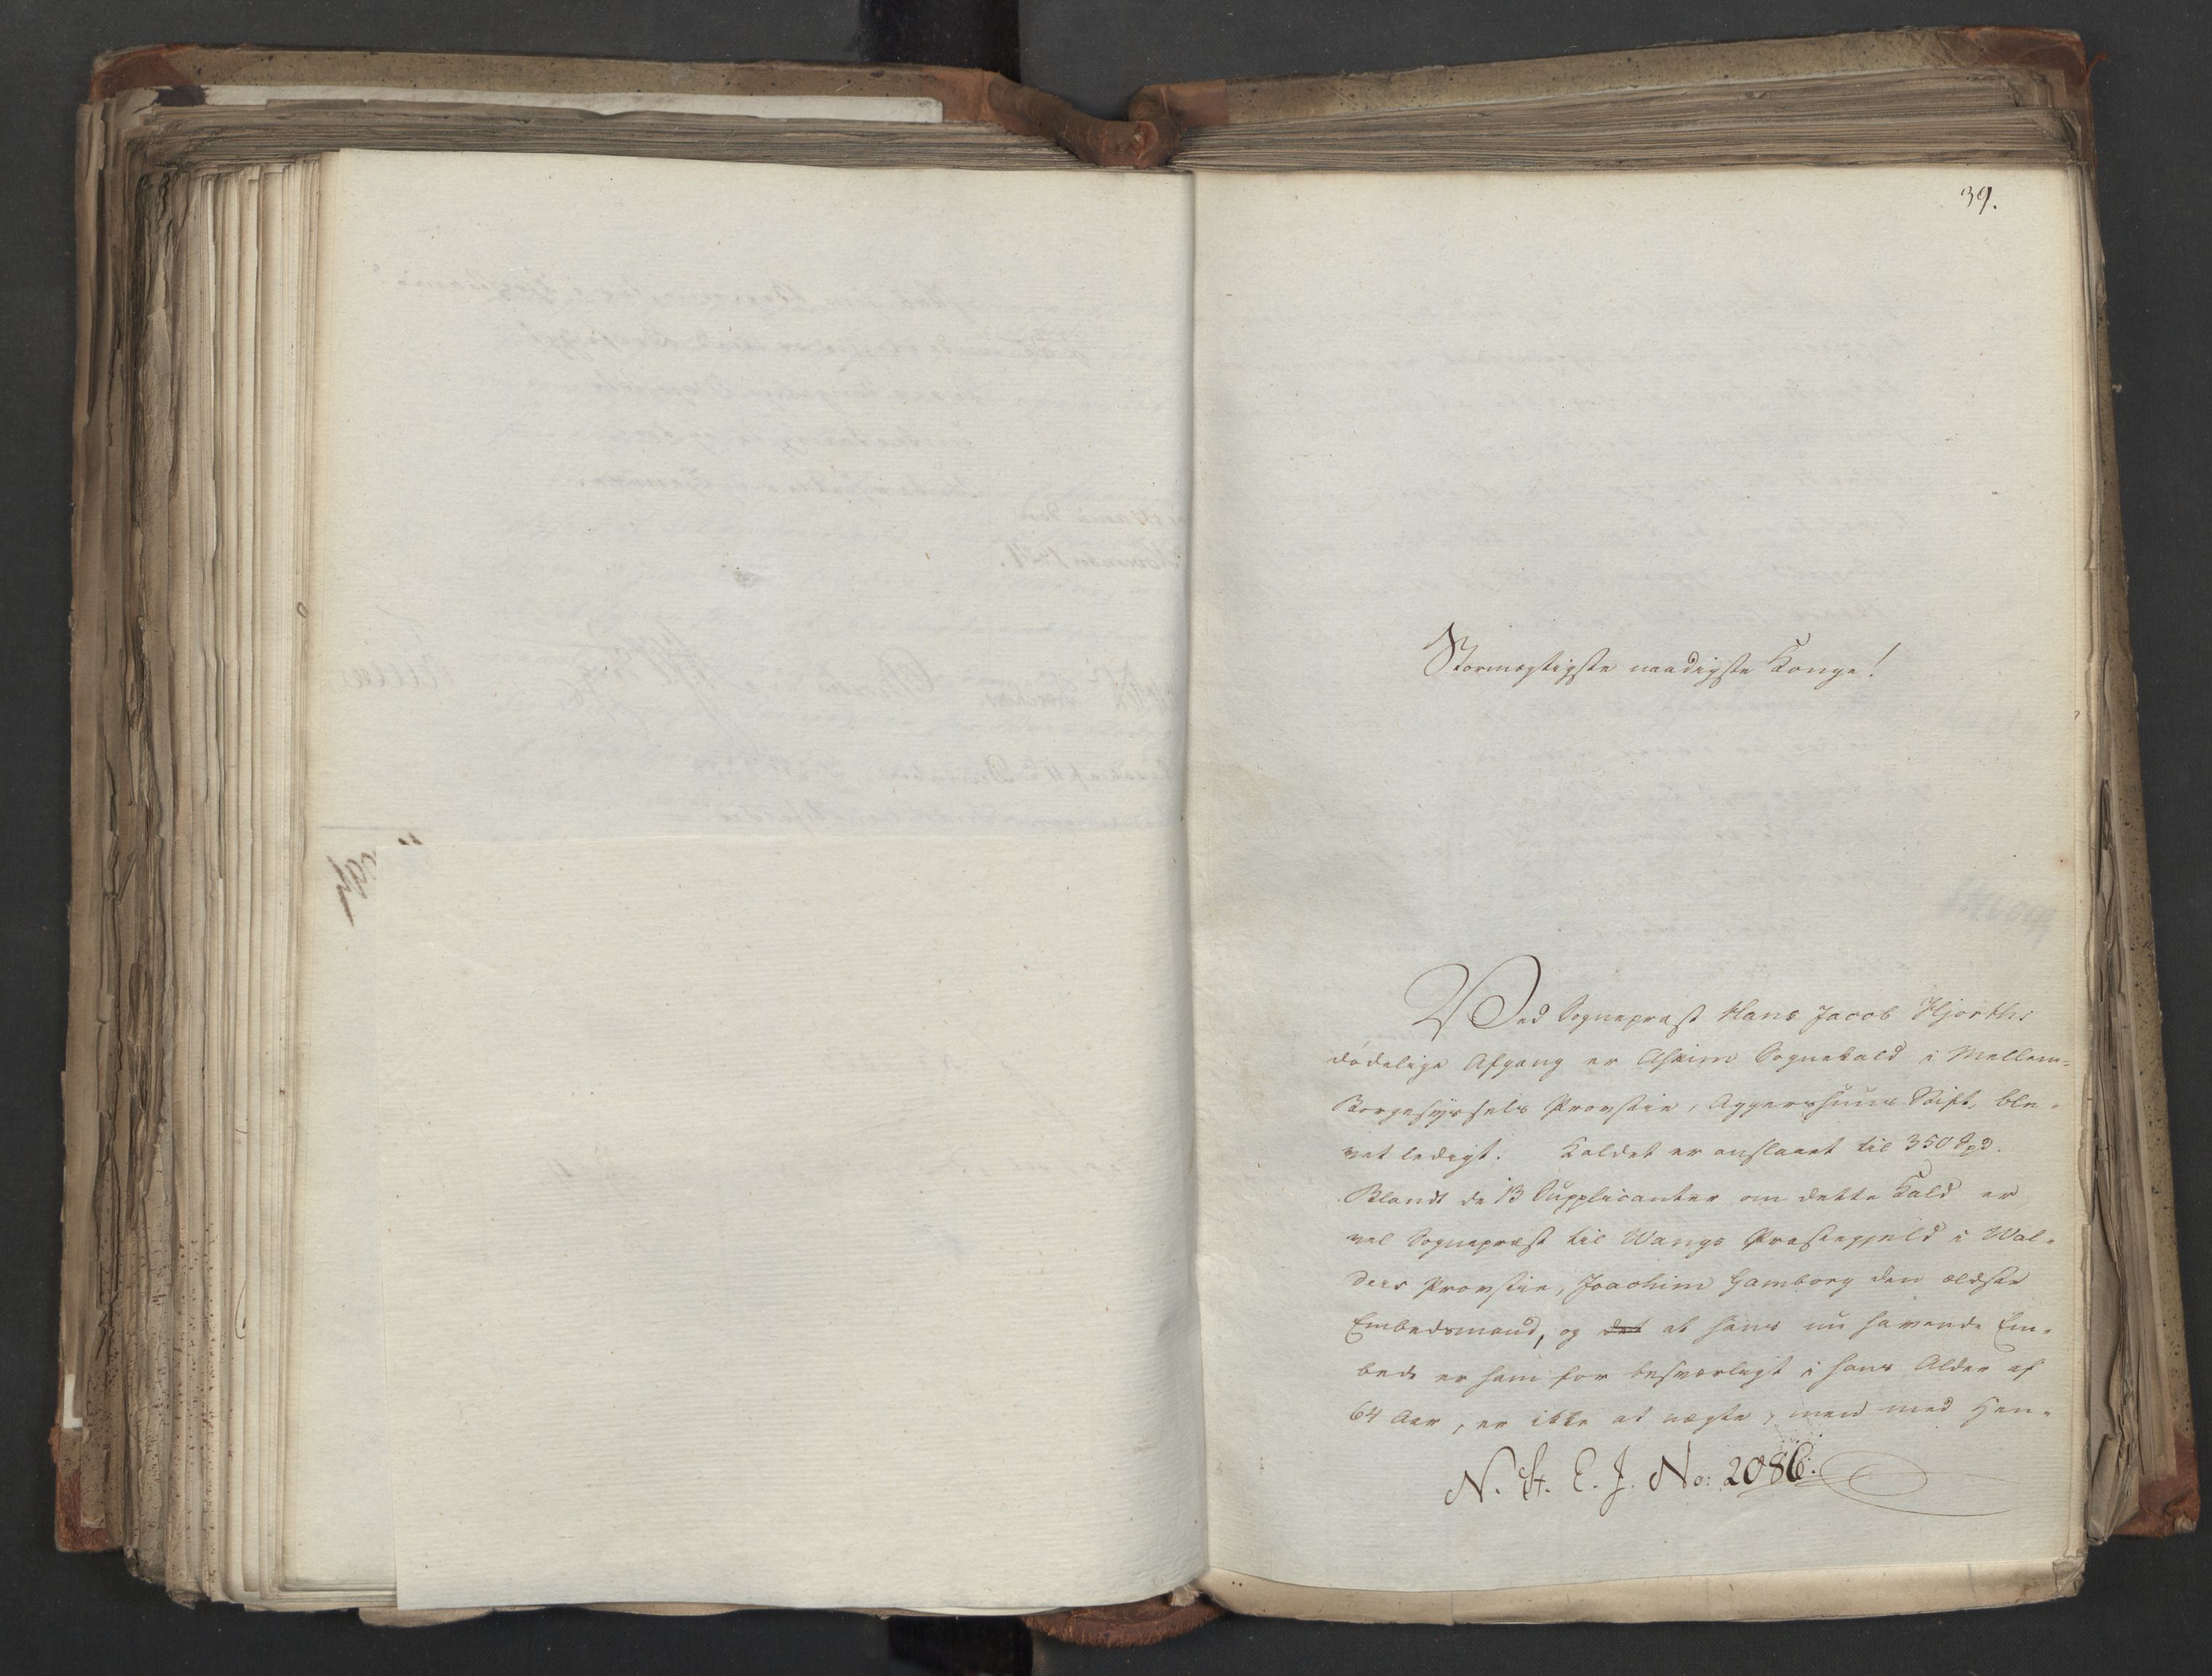 39.
Stormægtigste naadigste Konge!
Ved Sognepræst Hans Jacob Hjorths
dødelige Afgang er Askim Sognekald i Mellem-
Borgesyssels Provstie, Aggershuus Stift, ble-
vet ledigt. Kaldet er anslaaet til 350 Spd.
Blandt de 13 Supplicanter om dette Kald er
vel Sognepræst til Wangs Præstegjeld i Wal-
ders Provstie, Joachim Gamborg den ældste
Embedsmand, og det at hans nu havende Em-
bede er ham for besværligt i hans Alder af
64 Aar, er ikke at nægte, men med Hen-
N. St. E. J. No: 2086.